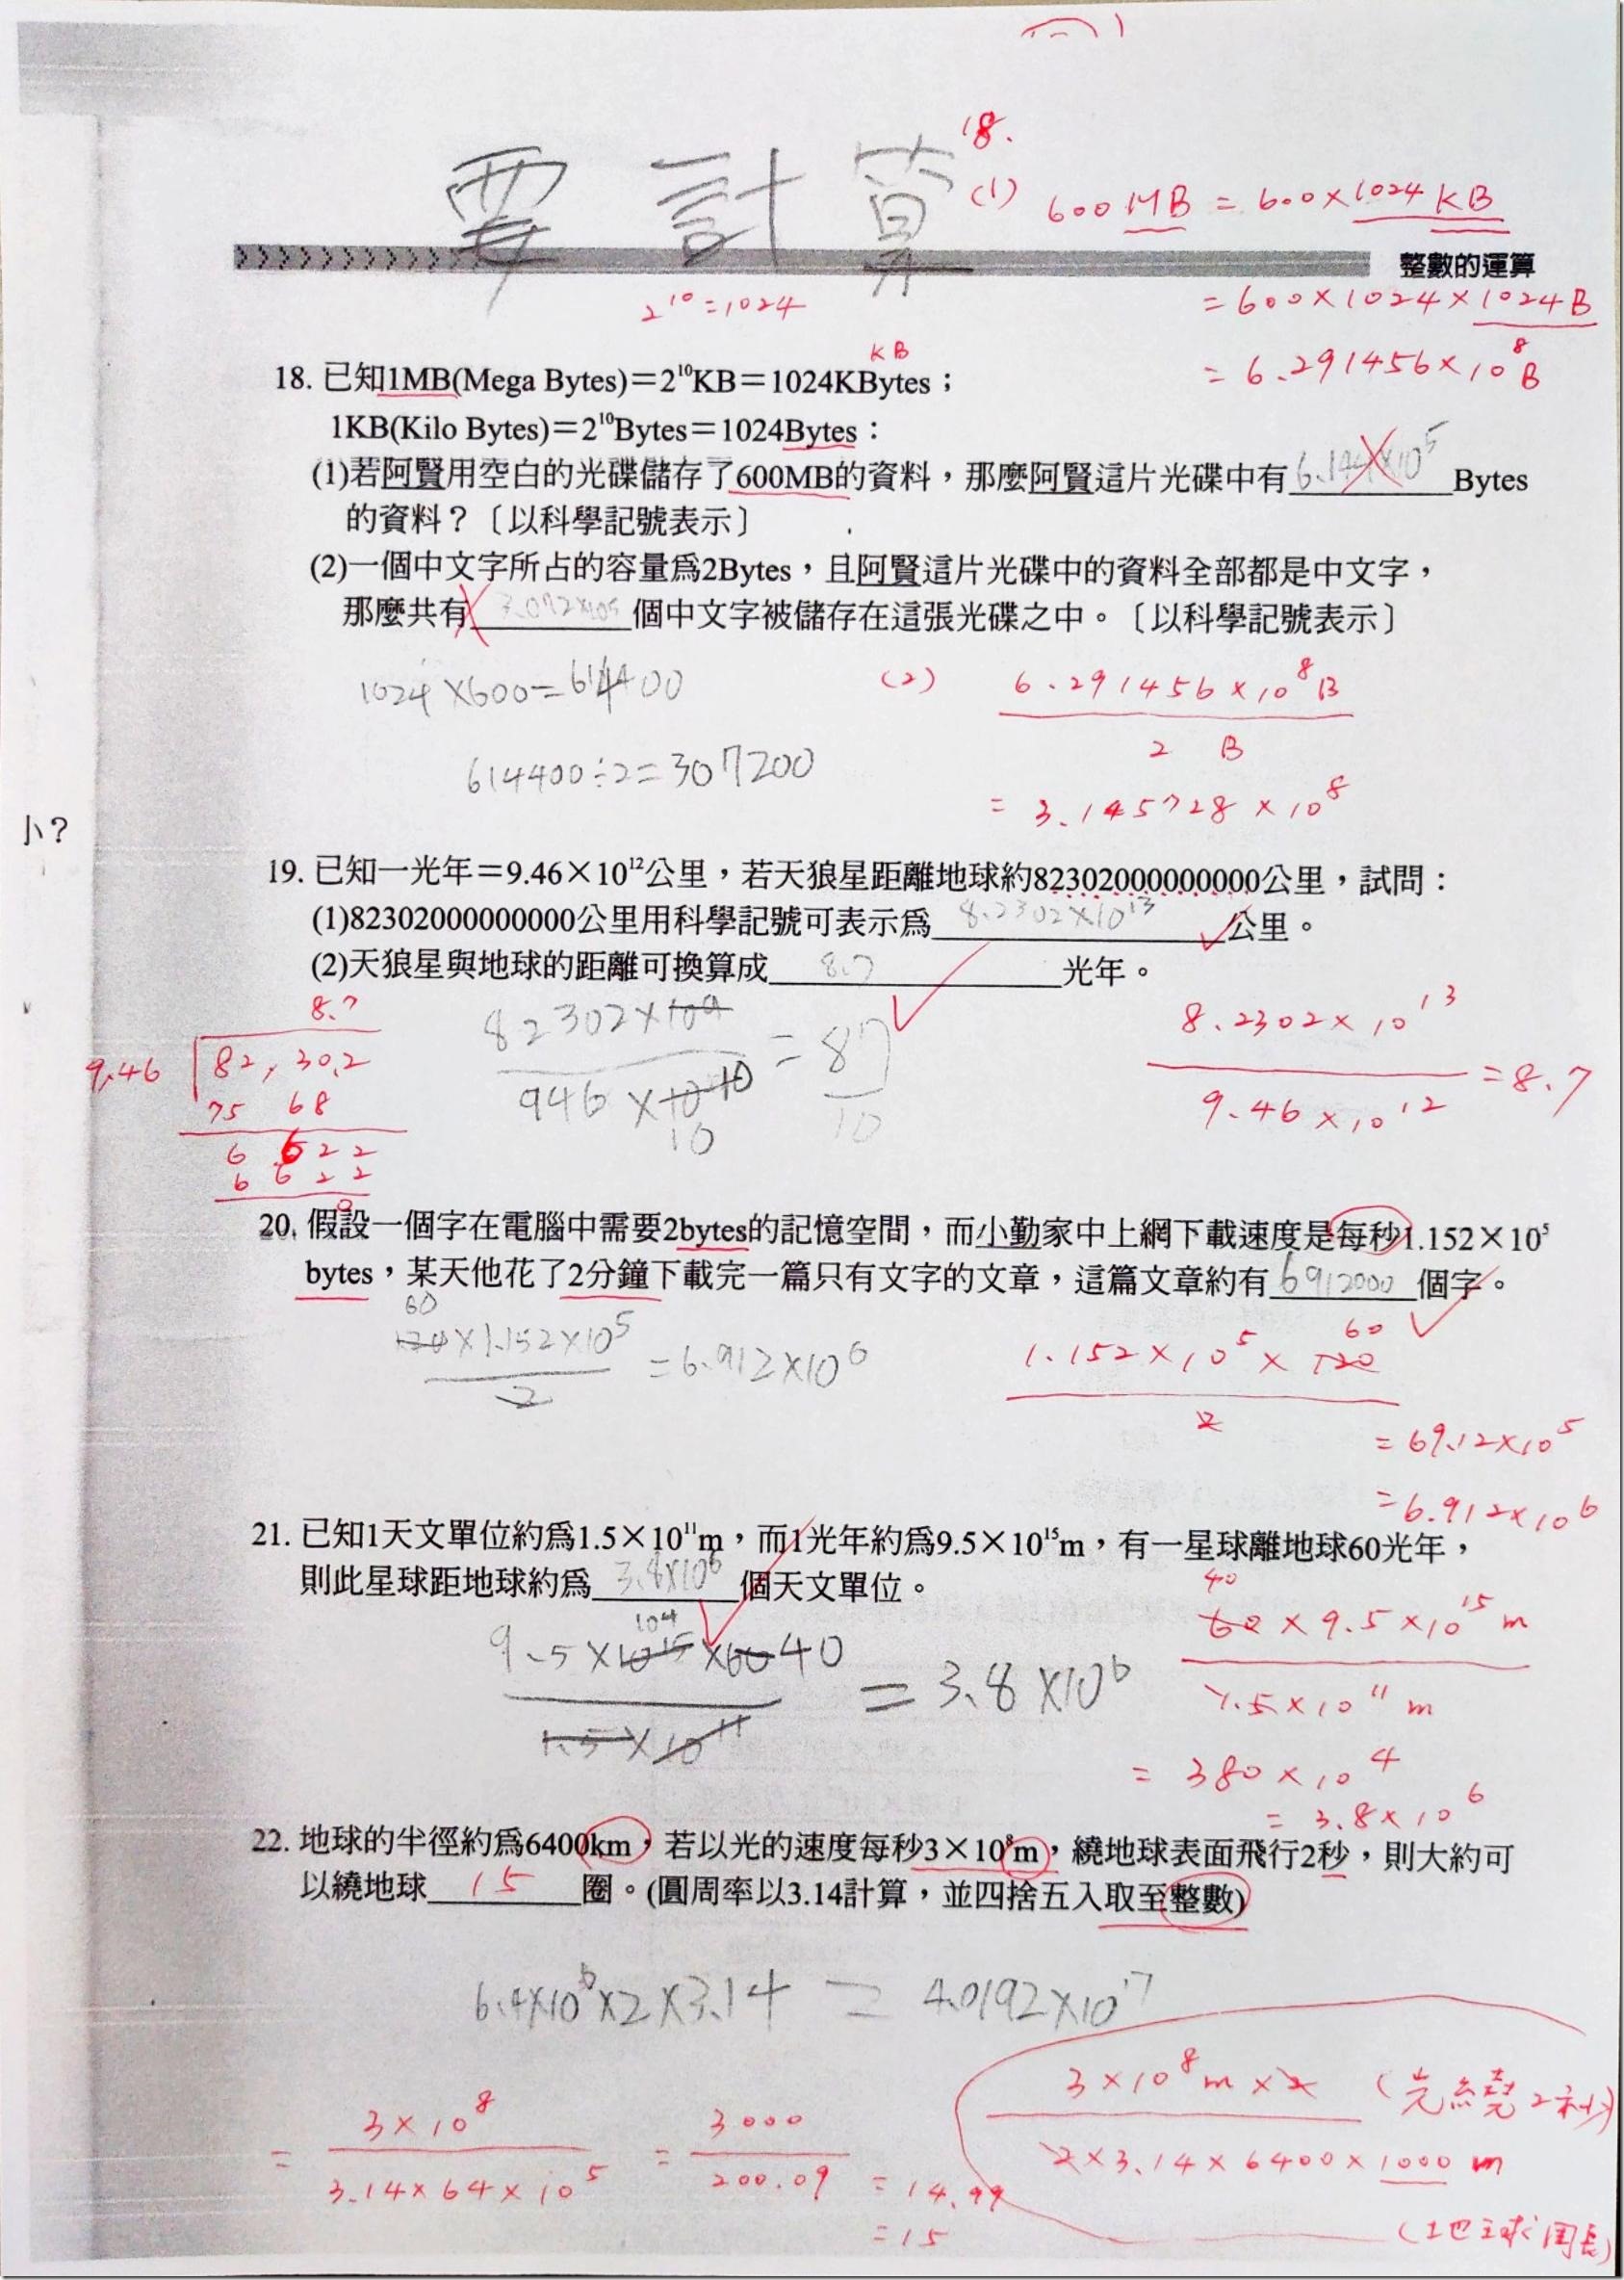 18.
要計算
(1) 600MB = 600×1024KB
整數的運算
2¹⁰=1024
= 600×1024×1024B
= 6.291456×10⁸B
KB
18. 已知1MB(Mega Bytes)＝2¹⁰KB＝1024KBytes；
1KB(Kilo Bytes)＝2¹⁰Bytes＝1024Bytes：
(1)若阿賢用空白的光碟儲存了600MB的資料，那麼阿賢這片光碟中有6.144×10⁵Bytes
的資料？〔以科學記號表示〕
(2)一個中文字所占的容量爲2Bytes，且阿賢這片光碟中的資料全部都是中文字，
那麼共有3.072×10⁵個中文字被儲存在這張光碟之中。〔以科學記號表示〕
1024×600=614400
(2) 6.291456×10⁸B
2 B
614400÷2=307200
= 3.145728×10⁸
小？
19. 已知一光年＝9.46×10¹²公里，若天狼星距離地球約82302000000000公里，試問：
(1)82302000000000公里用科學記號可表示爲8.2302×10¹³公里。
(2)天狼星與地球的距離可換算成8.7光年。
8.7
9.46 82,30.2
75 68
6 6 2 2
6 6 2 2
0
82302×10⁹
946×10¹⁰
10
= 87
10
8.2302×10¹³
9.46×10¹²
=8.7
20. 假設一個字在電腦中需要2bytes的記憶空間，而小勤家中上網下載速度是每秒1.152×10⁵
bytes，某天他花了2分鐘下載完一篇只有文字的文章，這篇文章約有6912000個字。
60
120×1.152×10⁵
2
=6.912×10⁶
60
1.152×10⁵×120
2
=69.12×10⁵
=6.912×10⁶
21. 已知1天文單位約爲1.5×10¹¹m，而1光年約爲9.5×10¹⁵m，有一星球離地球60光年，
則此星球距地球約爲3.8×10⁶個天文單位。
10⁴
9.5×10¹⁵×60 40
1.5×10¹¹
=3.8×10⁶
40
60×9.5×10¹⁵m
1.5×10¹¹m
= 380×10⁴
= 3.8×10⁶
22. 地球的半徑約爲6400km，若以光的速度每秒3×10⁸m，繞地球表面飛行2秒，則大約可
以繞地球15圈。(圓周率以3.14計算，並四捨五入取至整數)
6.4×10⁶×2×3.14 = 4.0192×10⁷
3×10⁸m×2 (光繞2秒)
2×3.14×6400×1000m
(地球周長)
= 3×10⁸
3.14×64×10⁵
= 3000
200.09
= 14.99
= 15